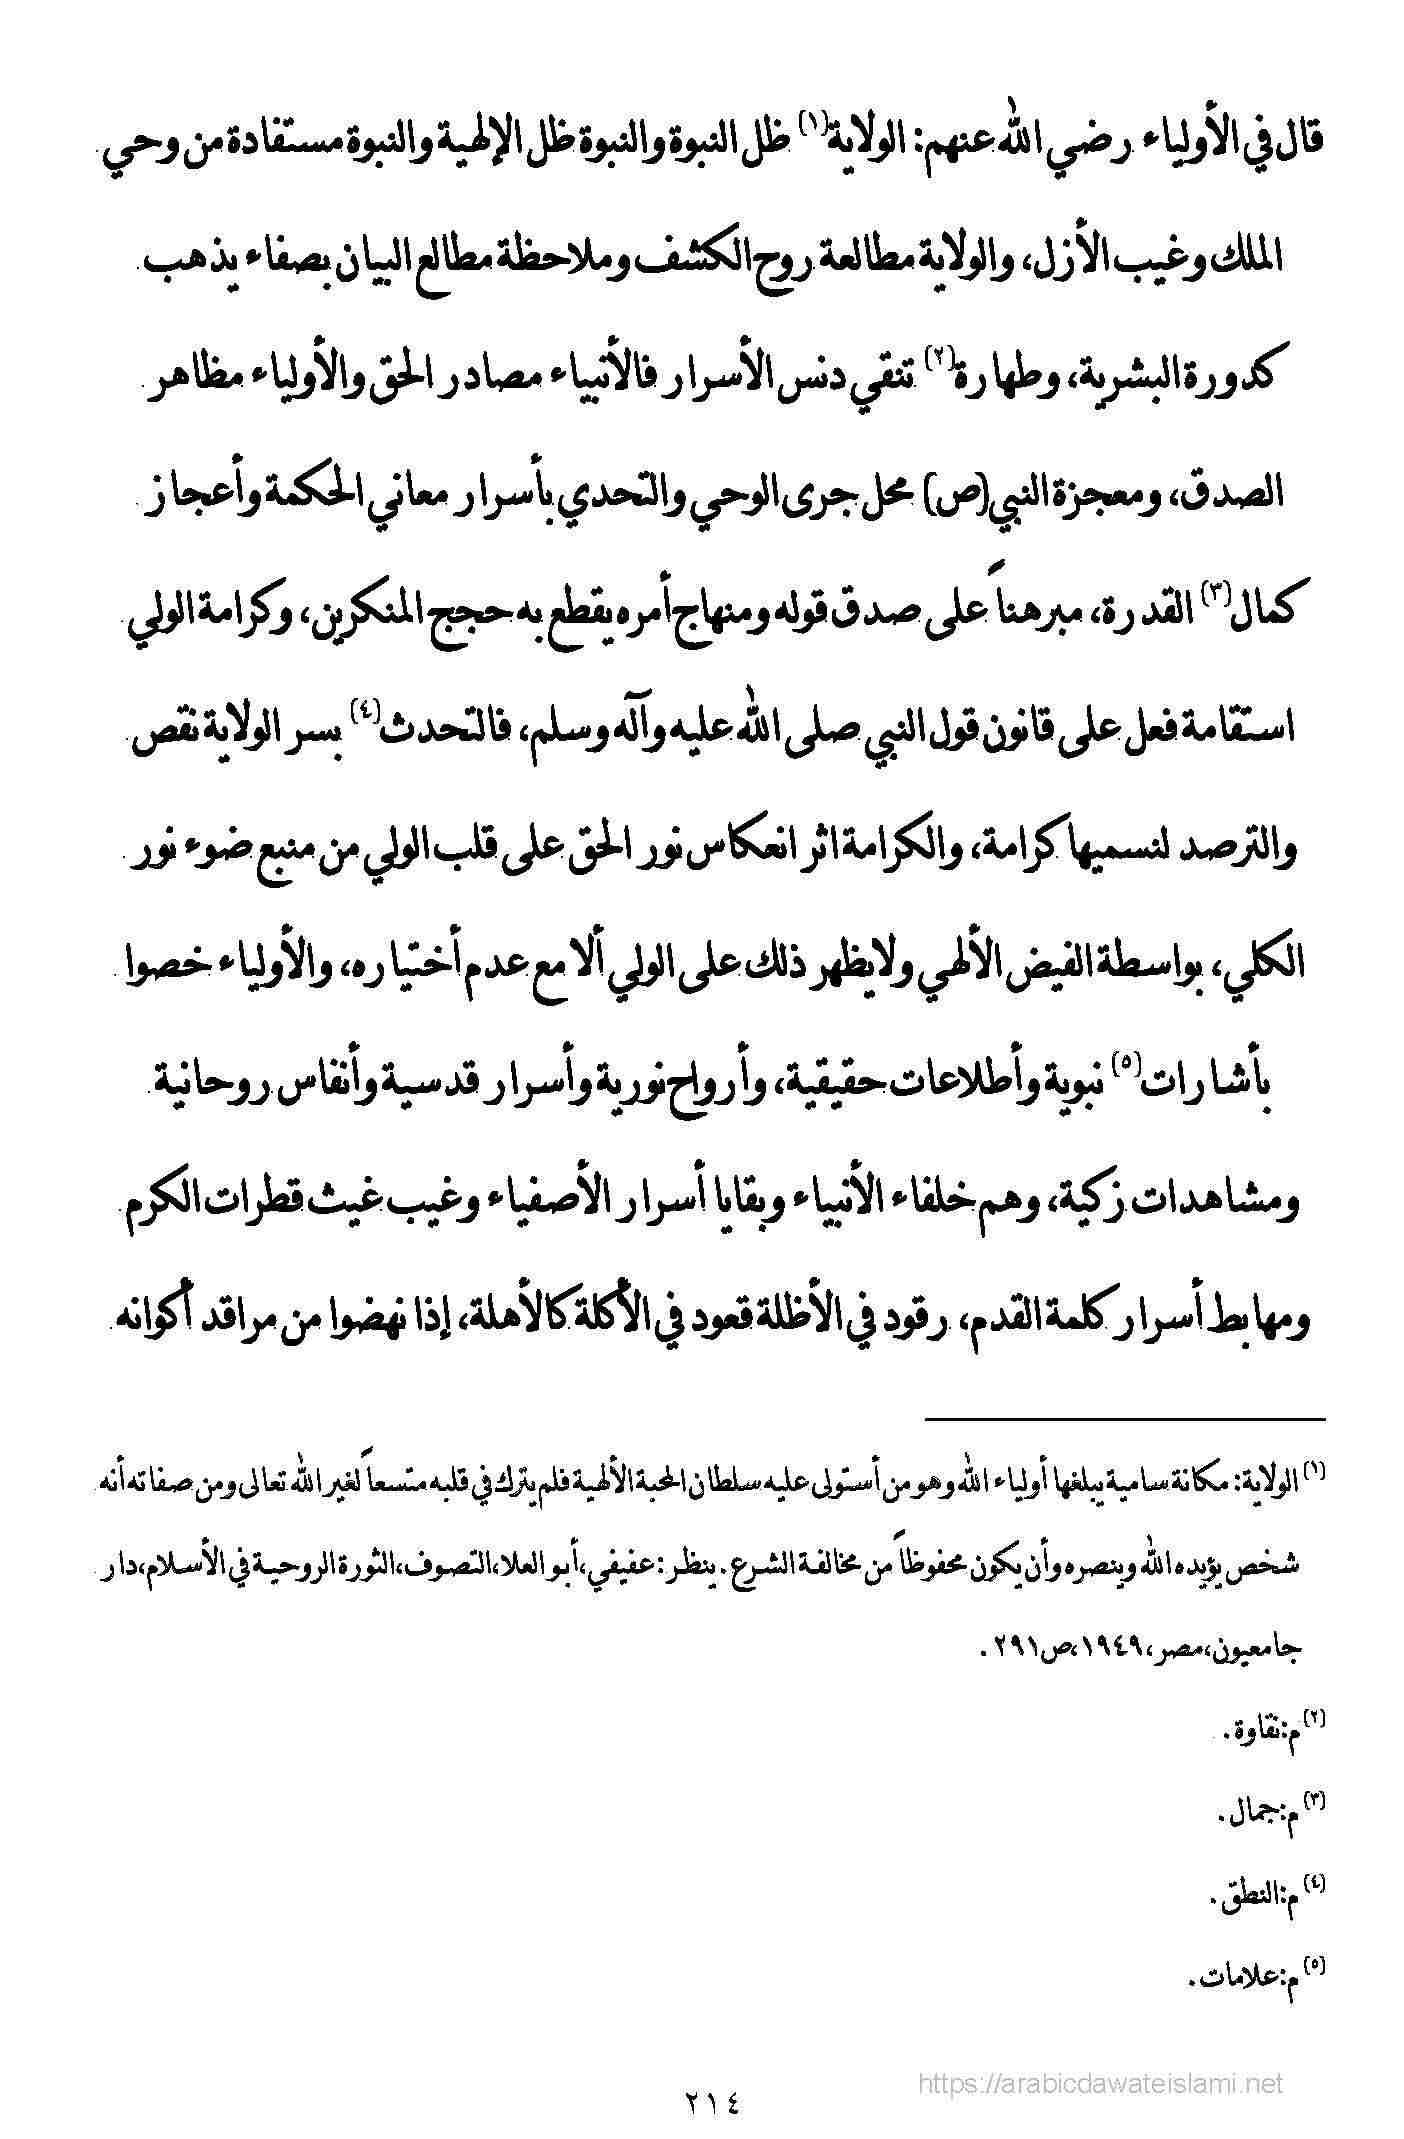 قال في الأولياء رضي الله عنهم: الولاية(١) ظل النبوة والنبوة ظل الإلهية والنبوة مستفادة من وحي
الملك وغيب الأزل، والولاية مطالعة روح الكشف وملاحظة مطالع البيان بصفاء يذهب
كدورة البشرية، وطهارة(٢) تنقي دنس الأسرار فالأنبياء مصادر الحق والأولياء مظاهر
الصدق، ومعجزة النبي(ص) محل جرى الوحي والتحدي بأسرار معاني الحكمة وأعجاز
كمال(٣) القدرة، مبرهناً على صدق قوله ومنهاج أمره يقطع به حجج المنكرين، وكرامة الولي
استقامة فعل على قانون قول النبي صلى الله عليه وآله وسلم، فالتحدث(٤) بسر الولاية نقص
والترصد لنسميها كرامة، والكرامة اثر انعكاس نور الحق على قلب الولي من منبع ضوء نور
الكلي، بواسطة الفيض الألهي ولايظهر ذلك على الولي ألا مع عدم أختياره، والأولياء خصوا
بأشارات(٥) نبوية وأطلاعات حقيقية، وأرواح نورية وأسرار قدسية وأنفاس روحانية
ومشاهدات زكية، وهم خلفاء الأنبياء وبقايا أسرار الأصفياء وغيب غيث قطرات الكرم
ومهابط أسرار كلمة القدم، رقود في الأظلة قعود في الأكلة كالأهلة، إذا نهضوا من مراقد أكوانه
(١) الولاية: مكانة سامية يبلغها أولياء الله وهو من أستولى عليه سلطان المحبة الألهية فلم يترك في قلبه متسعاً لغير الله تعالى ومن صفاته أنه
شخص يؤيده الله وينصره وأن يكون محفوظاً من مخالفة الشرع. ينظر: عفيفي،أبو العلا،التصوف،الثورة الروحية في الأسلام،دار
جامعيون،مصر،١٩٤٩،ص٢٩١.
(٢) م:نقاوة.
(٣) م:جمال.
(٤) م:النطق.
(٥) م:علامات.
https://arabicdawateislami.net
٢١٤